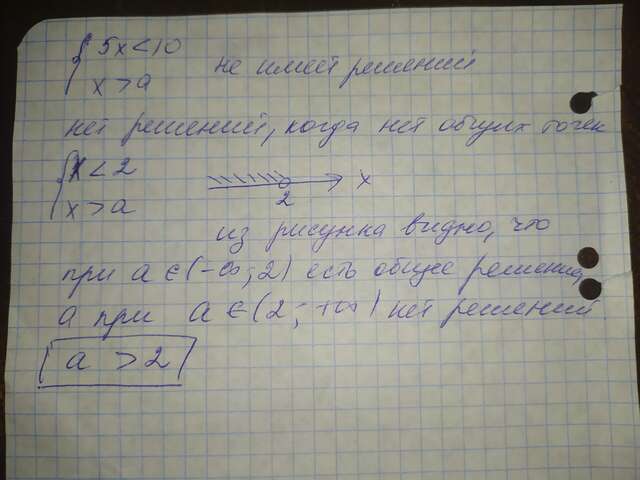 { 5x < 10
x > a не имеет решений
нет решений, когда нет общих точек
{ x < 2
x > a
x
2
из рисунка видно, что
при a ∈ (-∞; 2) есть общее решение,
а при a ∈ (2; +∞) нет решений.
a > 2